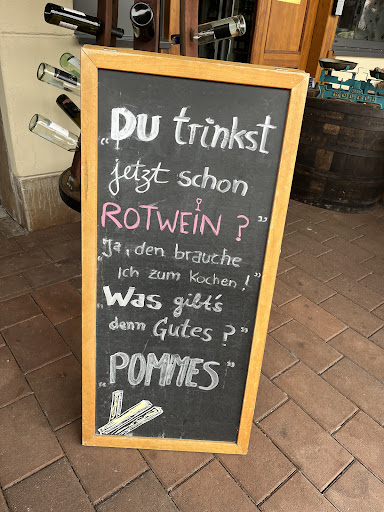 „DU trinkst
jetzt schon
ROTWEIN?"
„Ja, den brauche
ich zum Kochen!"
„Was gibt's
denn Gutes?"
„POMMES"